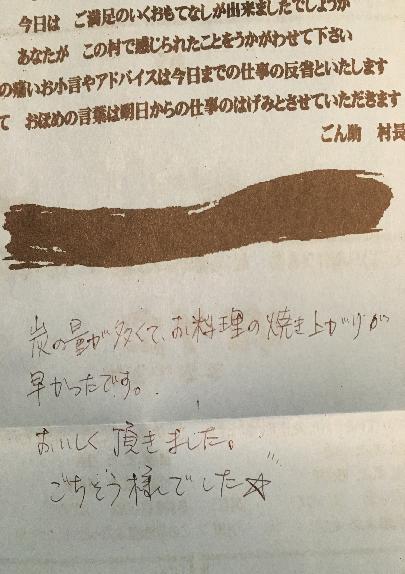 今日は ご満足のいくおもてなしが出来ましたでしょうか
あなたが この村で感じられたことをうかがわせて下さい
の痛いお小言やアドバイスは今日までの仕事の反省といたします
て おほめの言葉は明日からの仕事のはげみとさせていただきます
ごん助 村長
炭の量が多くて、お料理の焼き上がりが
早かったです。
おいしく頂きました。
ごちそう様んでした☆